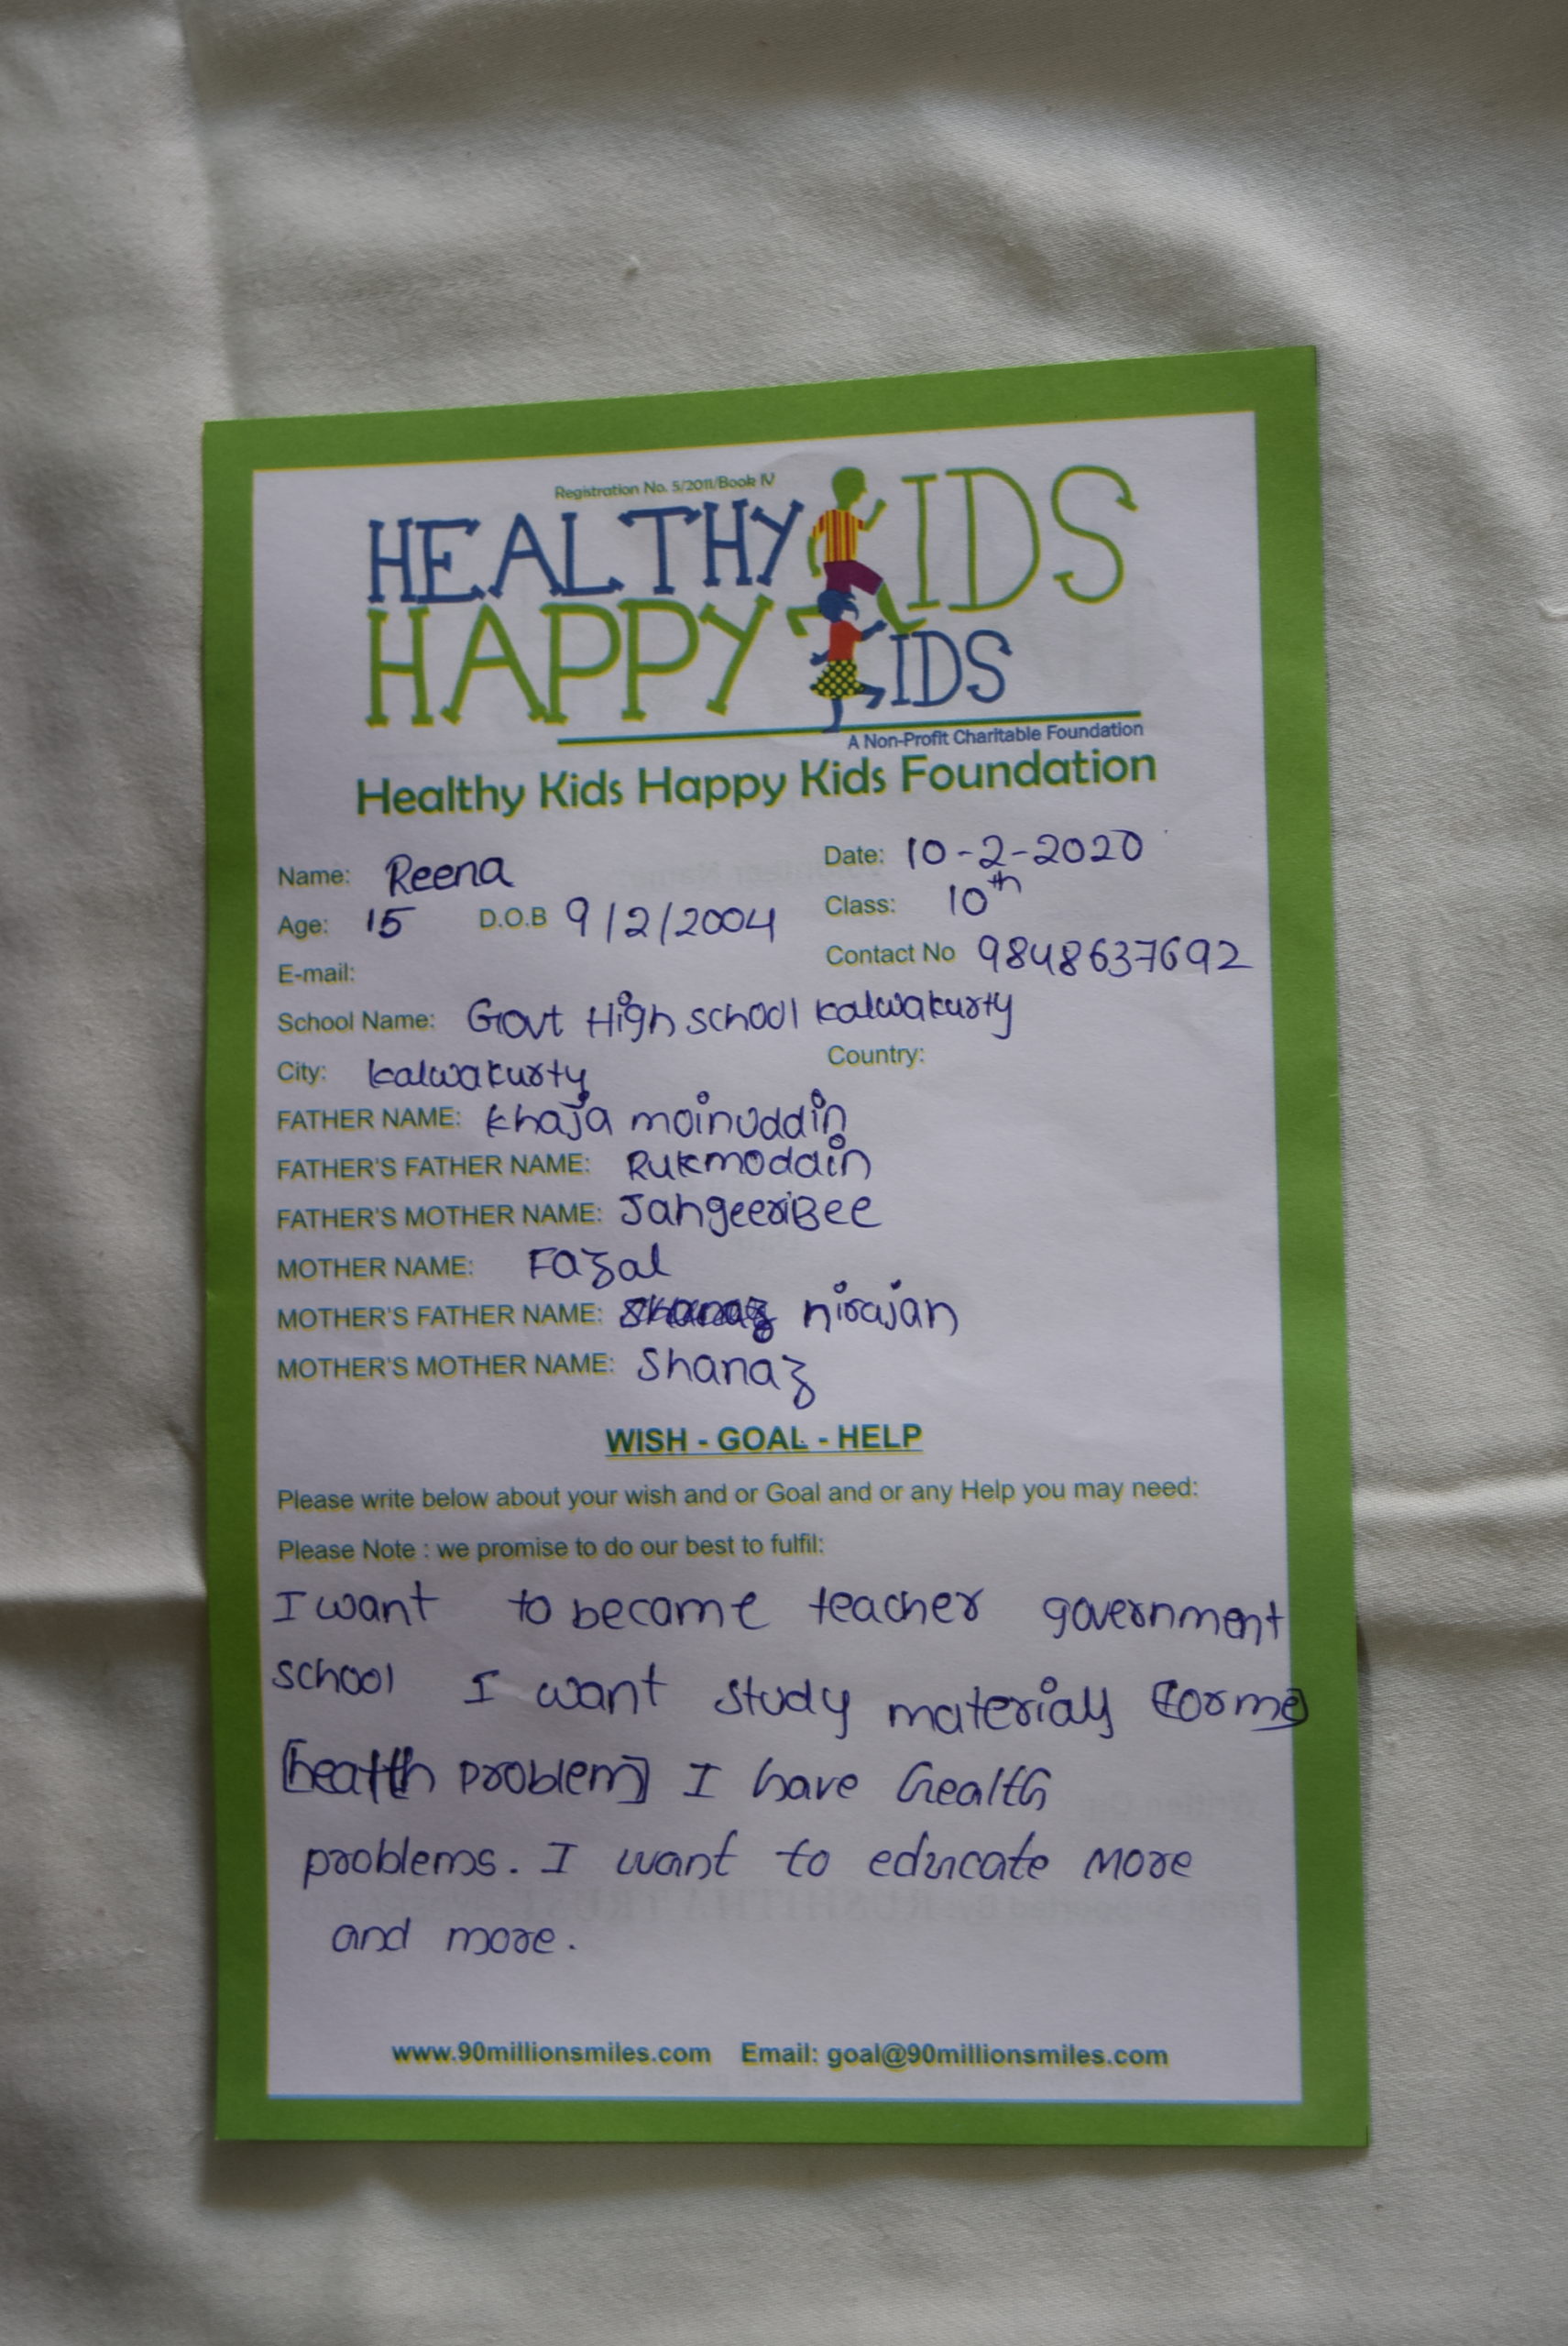 Registration No. 5/2011/Book IV
HEALTHY KIDS
HAPPY KIDS
A Non-Profit Charitable Foundation
Healthy Kids Happy Kids Foundation
Name: Reena Date: 10-2-2020
Age: 15 D.O.B 9/2/2004 Class: 10th
E-mail: Contact No 9848637692
School Name: Govt High school kalwakurty
City: kalwakurty Country:
FATHER NAME: khaja moinuddin
FATHER'S FATHER NAME: Rukmoddin
FATHER'S MOTHER NAME: JahgeeriBee
MOTHER NAME: Fazal
MOTHER'S FATHER NAME: nirajan
MOTHER'S MOTHER NAME: Shanaz
WISH - GOAL - HELP
Please write below about your wish and or Goal and or any Help you may need:
Please Note : we promise to do our best to fulfil:
I want to became teacher government
school I want study materials
[health problem] I have health
problems. I want to educate more
and more.
www.90millionsmiles.com Email: goal@90millionsmiles.com